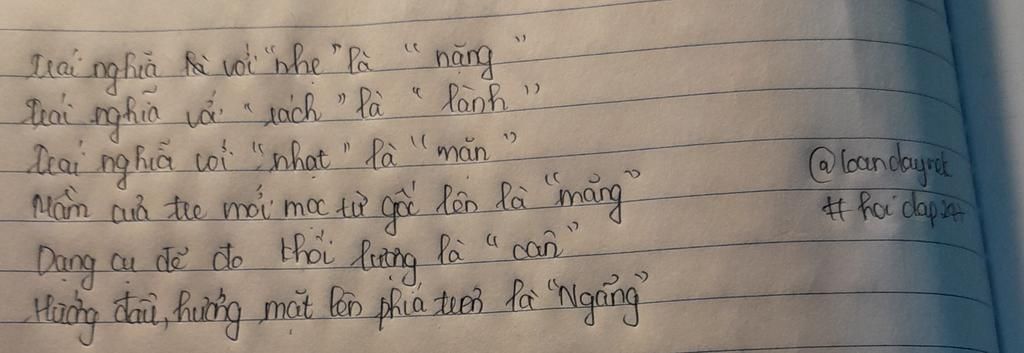 Trái nghĩa là với "nhẹ" là "nặng"
Trái nghĩa với "rách" là "lành"
Trái nghĩa với "nhạt" là "mặn"
Mầm của tre mới mọc từ gốc lên là "măng"
Dạng cụ để đo khối lượng là "cân"
Hướng đầu, hướng mặt lên phía trên là "Ngẩng"
@loandayret
# hoidap247